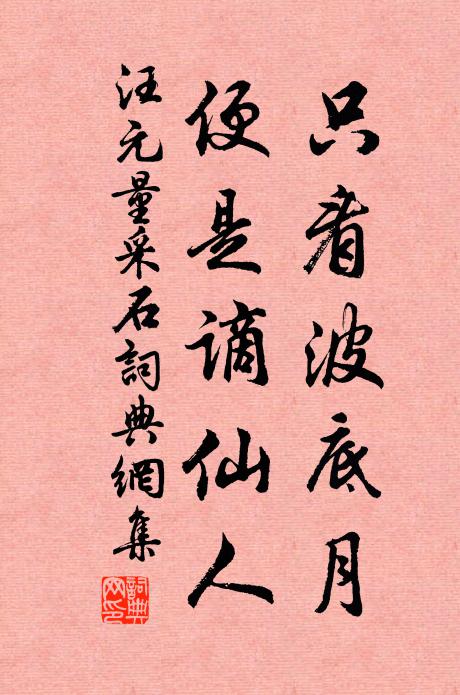 只看波底月
便是謫仙人
汪元量采石詞典網集
詞典网印